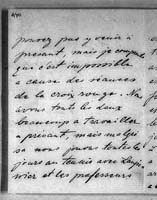 pouvez pas y venir à
présent, mais je comprends
que c'est impossible
à cause des séances
de la croix rouge. Nous
avons toutes les deux
beaucoup a travailler
a présent, mais malgré
sa nous jouons toute les
jours au tennis avec
nier et les professeurs